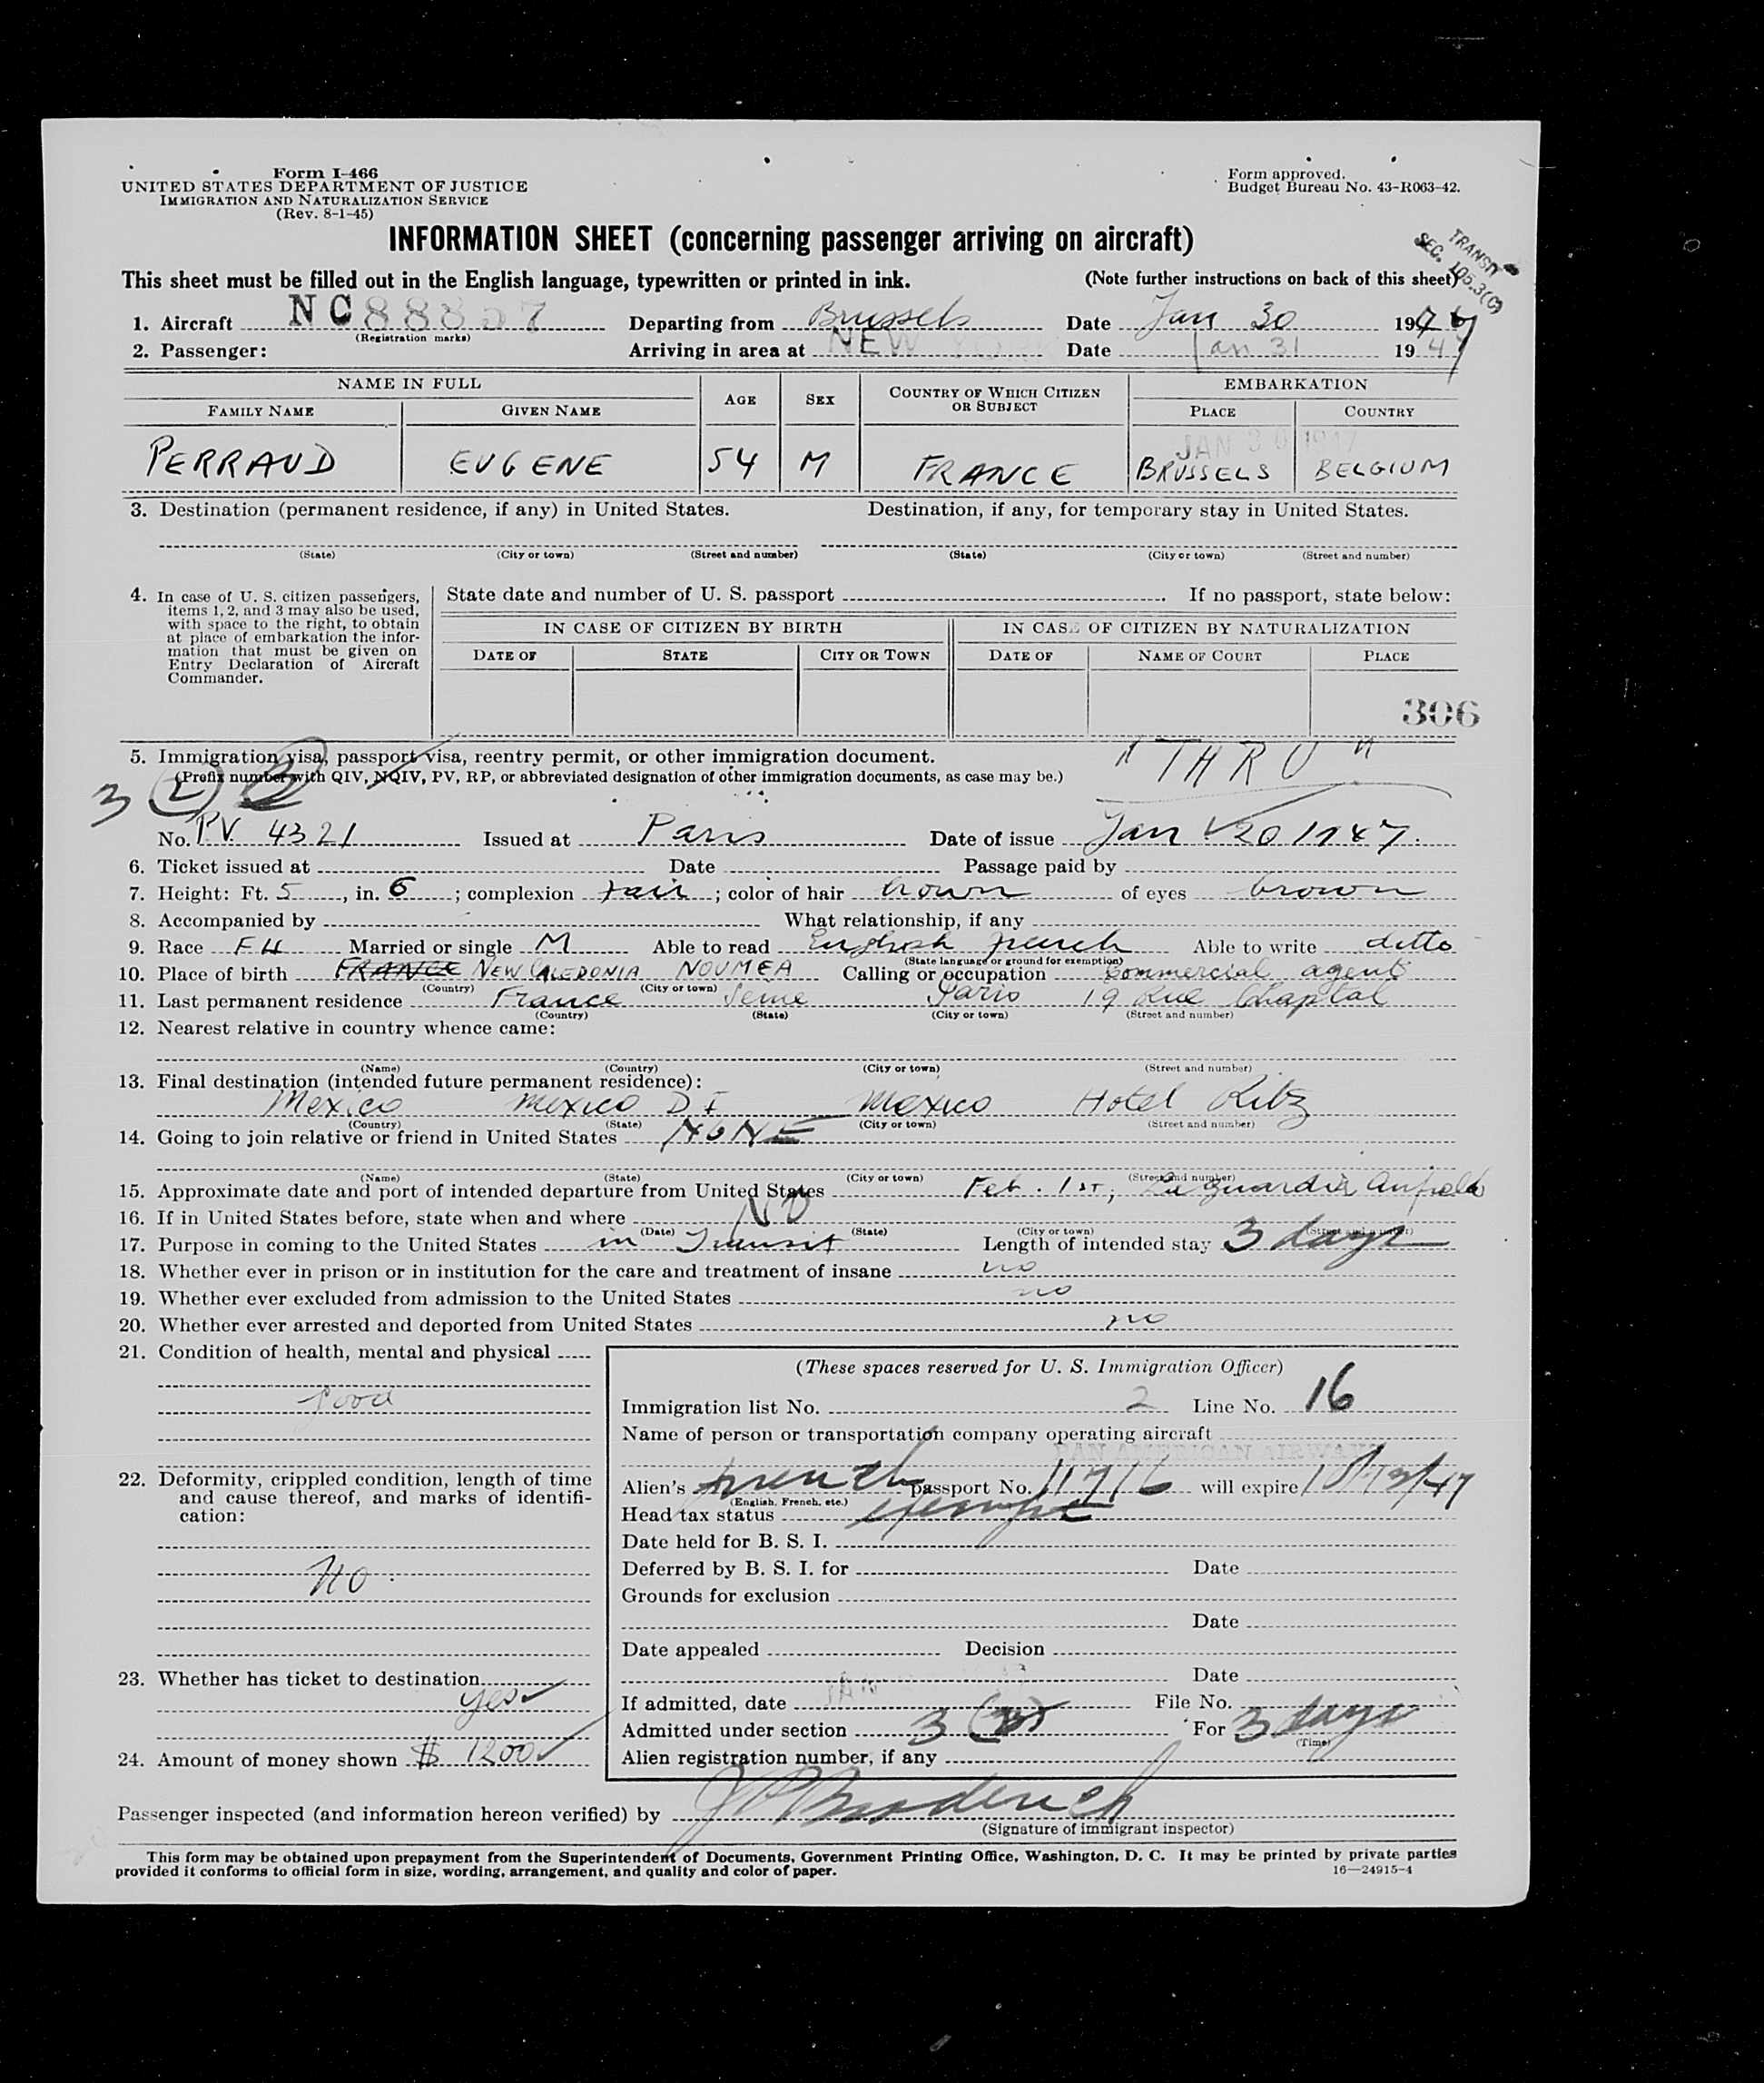 Form I-466
UNITED STATES DEPARTMENT OF JUSTICE
IMMIGRATION AND NATURALIZATION SERVICE
(Rev. 8-1-45)
Form approved.
Budget Bureau No. 43-R063-42.
INFORMATION SHEET (concerning passenger arriving on aircraft)
TRANSIT
SEC. 105.3(C)
This sheet must be filled out in the English language, typewritten or printed in ink. (Note further instructions on back of this sheet)
1. Aircraft NC88857 Departing from Brussels Date Jan 30 1947
(Registration marks)
2. Passenger: Arriving in area at NEW YORK Date Jan 31 1947
NAME IN FULL AGE SEX COUNTRY OF WHICH CITIZEN OR SUBJECT EMBARKATION
FAMILY NAME GIVEN NAME PLACE COUNTRY
JAN 30 1947
PERRAUD EUGENE 54 M FRANCE BRUSSELS BELGIUM
3. Destination (permanent residence, if any) in United States. Destination, if any, for temporary stay in United States.
(State) (City or town) (Street and number) (State) (City or town) (Street and number)
4. In case of U. S. citizen passengers, items 1, 2, and 3 may also be used, with space to the right, to obtain at place of embarkation the information that must be given on Entry Declaration of Aircraft Commander.
State date and number of U. S. passport . If no passport, state below:
IN CASE OF CITIZEN BY BIRTH IN CASE OF CITIZEN BY NATURALIZATION
DATE OF STATE CITY OR TOWN DATE OF NAME OF COURT PLACE
306
5. Immigration visa, passport visa, reentry permit, or other immigration document.
(Prefix number with QIV, NQIV, PV, RP, or abbreviated designation of other immigration documents, as case may be.)
"THRU"
3 (2)
No. P.V. 4321 Issued at Paris Date of issue Jan 20 1947.
6. Ticket issued at Date Passage paid by
7. Height: Ft. 5, in. 6; complexion fair; color of hair brown of eyes brown
8. Accompanied by What relationship, if any
9. Race FH Married or single M Able to read English french Able to write ditto
(State language or ground for exemption)
10. Place of birth FRANCE NEW CALEDONIA NOUMEA Calling or occupation Commercial agent
(Country) (City or town)
11. Last permanent residence France Seine Paris 19 Rue Chaptal
(Country) (State) (City or town) (Street and number)
12. Nearest relative in country whence came:
(Name) (Country) (City or town) (Street and number)
13. Final destination (intended future permanent residence):
Mexico Mexico D F Mexico Hotel Ritz
(Country) (State) (City or town) (Street and number)
14. Going to join relative or friend in United States NONE
(Name) (State) (City or town) (Street and number)
15. Approximate date and port of intended departure from United States Feb. 1st, La guardia Airfield
16. If in United States before, state when and where NO
(Date) (State) (City or town) (Street and number)
17. Purpose in coming to the United States in Transit Length of intended stay 3 days
18. Whether ever in prison or in institution for the care and treatment of insane no
19. Whether ever excluded from admission to the United States no
20. Whether ever arrested and deported from United States no
21. Condition of health, mental and physical
good
22. Deformity, crippled condition, length of time and cause thereof, and marks of identification:
No.
23. Whether has ticket to destination
yes
24. Amount of money shown $ 1200
(These spaces reserved for U. S. Immigration Officer)
Immigration list No. 2 Line No. 16
Name of person or transportation company operating aircraft
PAN AMERICAN AIRWAYS
Alien's french passport No. 11716 will expire 10/13/47
(English, French, etc.)
Head tax status exempt
Date held for B. S. I.
Deferred by B. S. I. for Date
Grounds for exclusion
Date
Date appealed Decision
Date
If admitted, date JAN File No.
Admitted under section 3 (2) For 3 days
(Time)
Alien registration number, if any
Passenger inspected (and information hereon verified) by
(Signature of immigrant inspector)
This form may be obtained upon prepayment from the Superintendent of Documents, Government Printing Office, Washington, D. C. It may be printed by private parties
provided it conforms to official form in size, wording, arrangement, and quality and color of paper. 16—24915-4